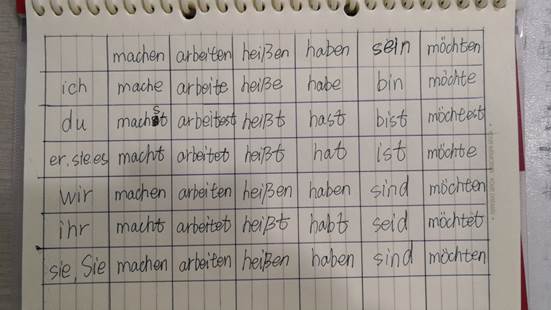 machen arbeiten heißen haben sein möchten
ich mache arbeite heiße habe bin möchte
du machst arbeitest heißt hast bist möchtest
er.sie.es macht arbeitet heißt hat ist möchte
wir machen arbeiten heißen haben sind möchten
ihr macht arbeitet heißt habt seid möchtet
sie, Sie machen arbeiten heißen haben sind möchten